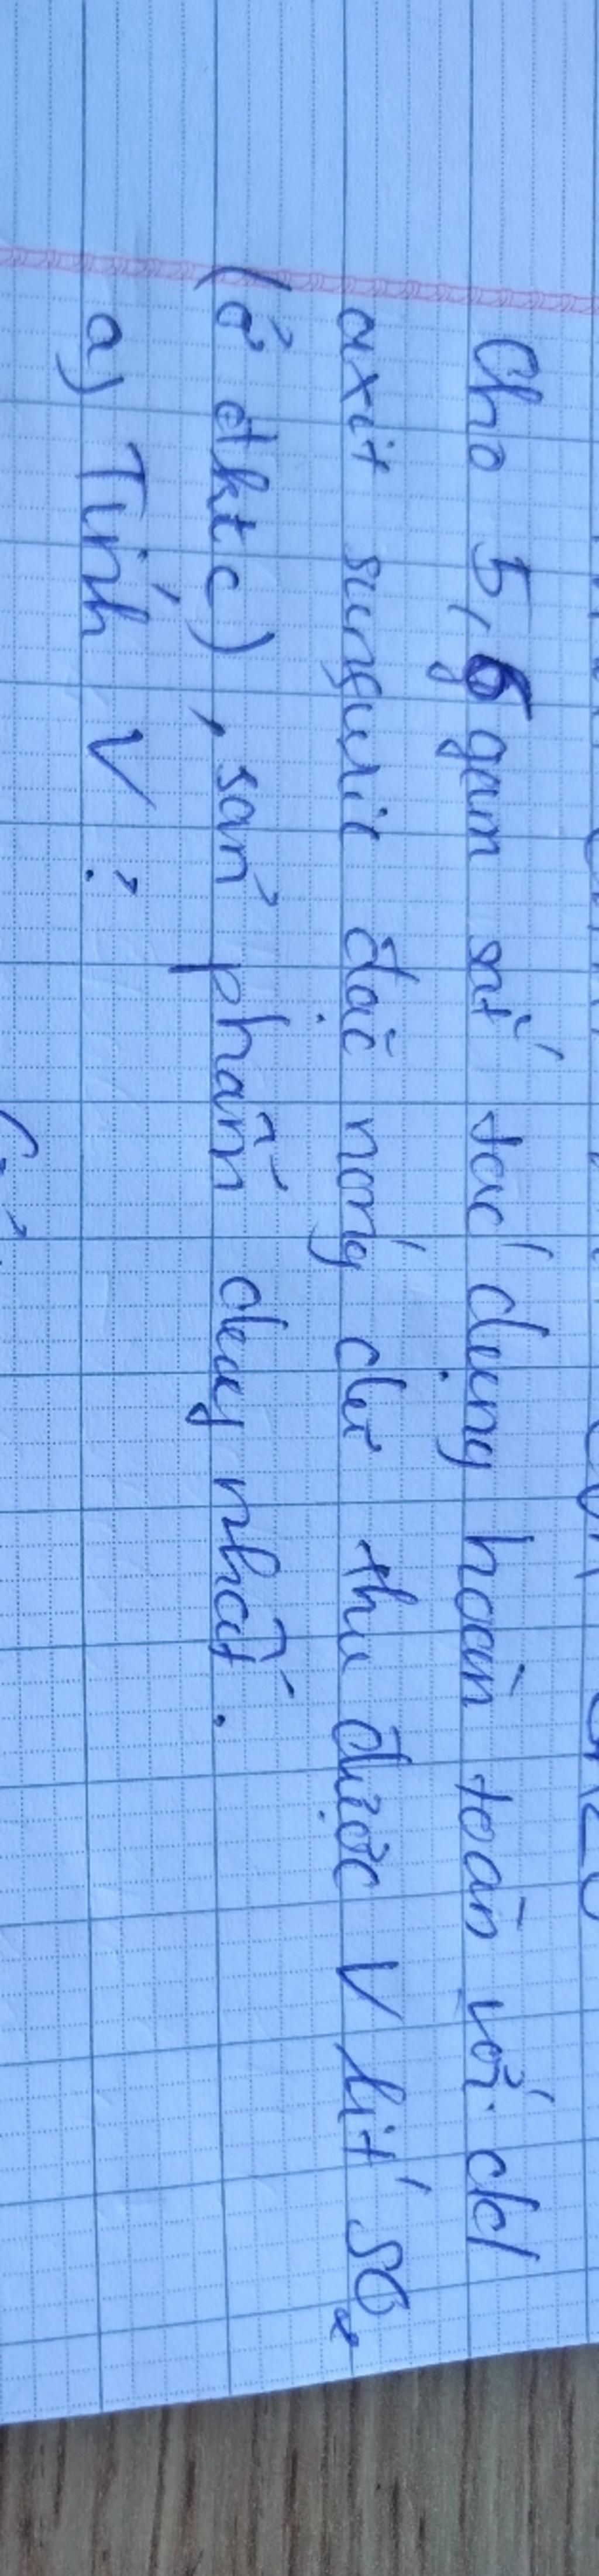 Cho 5,6 gam sắt tác dụng hoàn toàn với dd
axit sunfuric đặc nóng dư thu được V lít SO2
(ở đktc), sản phẩm duy nhất.
a) Tính V?